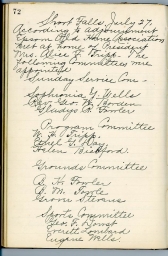 72
Short Falls, July 27.
According to adjournment
Home Association
met at home of President
Mrs. Alice L. Tripp. The
following Committees were
appointed
Sunday Service Com-
Sophronia Y. Wells
Rev. Geo. W.
Gladys E. Fowler
Program Committee
W. B. Tripp
Ethel G. Kay
Helen Bickford
Grounds Committee
B. H. Fowler
B. M. Towle
Grove Stevens
Sports Committee
Geo. F.
Everett Lombard
Eugene Wells.